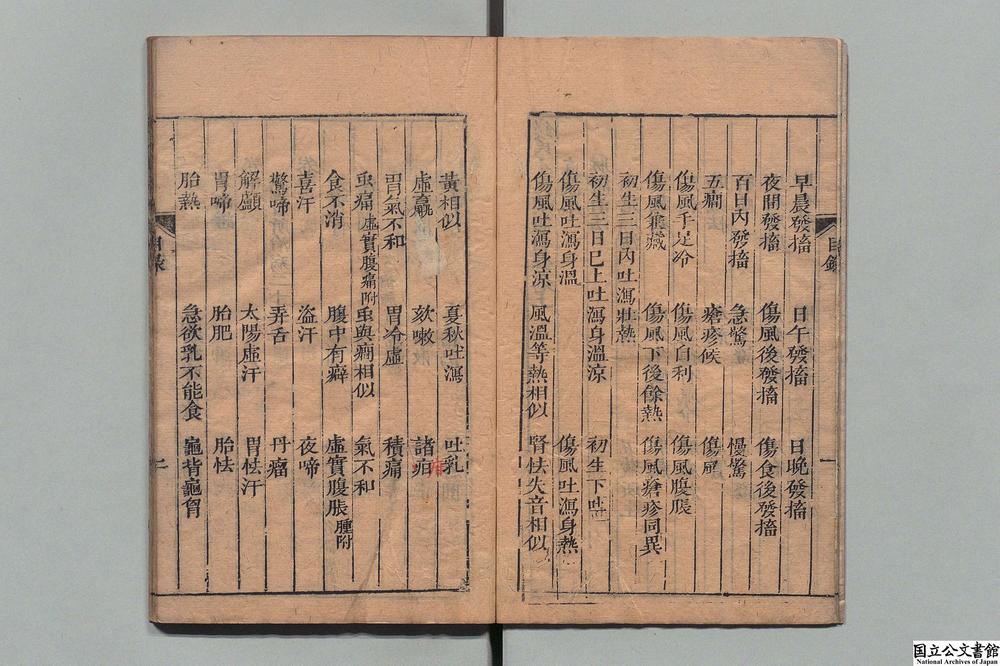 早晨發搐 日午發搐 日晚發搐
夜間發搐 傷風後發搐 傷食後發搐
百日內發搐 急驚 慢驚
五癇 瘡疹候 傷風
傷風手足冷 傷風自利 傷風腹脹
傷風兼藏 傷風下後餘熱 傷風瘡疹同異
初生三日內吐瀉壯熱
初生三日已上吐瀉身溫涼 初生下吐
傷風吐瀉身溫 傷風吐瀉身熱
傷風吐瀉身涼 風溫等熱相似 腎怯失音相似
目錄 一
黃相似 夏秋吐瀉 吐乳
虛羸 欬嗽 諸疳
胃氣不和 胃冷虛 積痛
虫痛虛實腹痛附 虫與癇相似 氣不和
食不消 腹中有癖 虛實腹脹腫附
喜汗 盜汗 夜啼
驚啼 弄舌 丹瘤
解顱 太陽虛汗 胃怯汗
胃啼 胎肥 胎怯
胎熱 急欲乳不能食 龜背龜胷
目錄 二
国立公文書館
National Archives of Japan